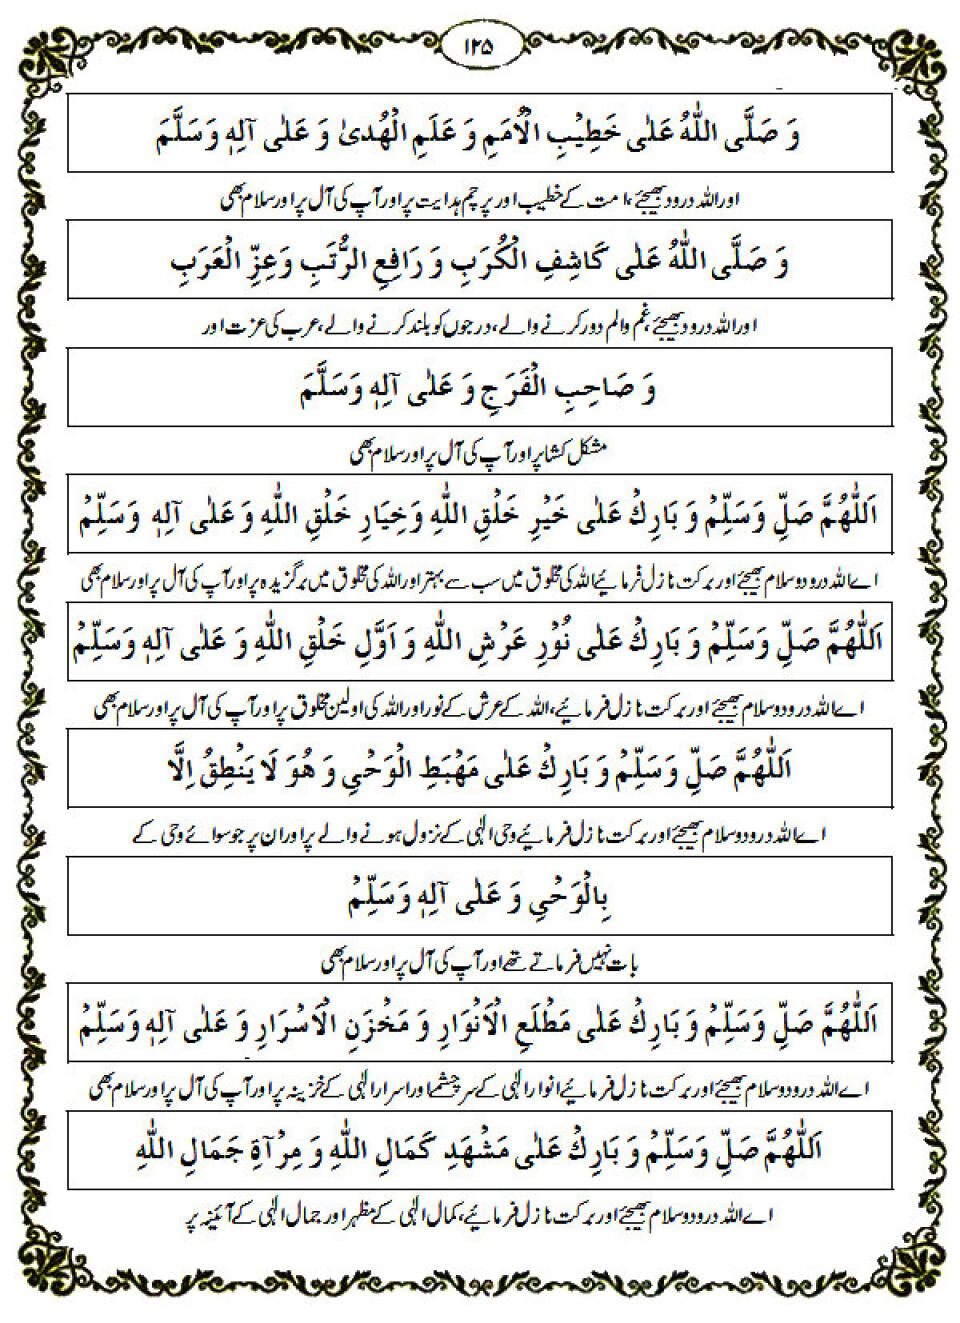 ۱۲۵
وَ صَلَّی اللّٰهُ عَلٰی خَطِیْبِ الْاُمَمِ وَ عَلَمِ الْهُدیٰ وَ عَلٰی آلِهٖ وَسَلَّمَ
اور اللہ درود بھیجئے، امت کے خطیب اور پرچم ہدایت پر اور آپ کی آل پر اور سلام بھی
وَ صَلَّی اللّٰهُ عَلٰی کَاشِفِ الْکُرَبِ وَ رَافِعِ الرُّتَبِ وَعِزِّ الْعَرَبِ
اور اللہ درود بھیجئے، غم والم دور کرنے والے، درجوں کو بلند کرنے والے، عرب کی عزت اور
وَ صَاحِبِ الْفَرَجِ وَ عَلٰی آلِهٖ وَسَلَّمَ
مشکل کشا پر اور آپ کی آل پر اور سلام بھی
اَللّٰهُمَّ صَلِّ وَسَلِّمْ وَ بَارِکْ عَلٰی خَیْرِ خَلْقِ اللّٰهِ وَخِیَارِ خَلْقِ اللّٰهِ وَ عَلٰی آلِهٖ وَسَلِّمْ
اے اللہ درود و سلام بھیجئے اور برکت نازل فرمائیے اللہ کی مخلوق میں سب سے بہتر اور اللہ کی مخلوق میں برگزیدہ پر اور آپ کی آل پر اور سلام بھی
اَللّٰهُمَّ صَلِّ وَسَلِّمْ وَ بَارِکْ عَلٰی نُوْرِ عَرْشِ اللّٰهِ وَ اَوَّلِ خَلْقِ اللّٰهِ وَ عَلٰی آلِهٖ وَسَلِّمْ
اے اللہ درود و سلام بھیجئے اور برکت نازل فرمائیے، اللہ کے عرش کے نور اور اللہ کی اولین مخلوق پر اور آپ کی آل پر اور سلام بھی
اَللّٰهُمَّ صَلِّ وَسَلِّمْ وَ بَارِکْ عَلٰی مَهْبَطِ الْوَحْیِ وَ هُوَ لَا یَنْطِقُ اِلَّا
اے اللہ درود و سلام بھیجئے اور برکت نازل فرمائیے وحی الٰہی کے نزول ہونے والے پر اور ان پر جو سوائے وحی کے
بِالْوَحْیِ وَ عَلٰی آلِهٖ وَسَلِّمْ
بات نہیں فرماتے تھے اور آپ کی آل پر اور سلام بھی
اَللّٰهُمَّ صَلِّ وَسَلِّمْ وَ بَارِکْ عَلٰی مَطْلَعِ الْاَنْوَارِ وَ مَخْزَنِ الْاَسْرَارِ وَ عَلٰی آلِهٖ وَسَلِّمْ
اے اللہ درود و سلام بھیجئے اور برکت نازل فرمائیے انوار الٰہی کے سرچشمہ اور اسرار الٰہی کے خزینہ پر اور آپ کی آل پر اور سلام بھی
اَللّٰهُمَّ صَلِّ وَسَلِّمْ وَ بَارِکْ عَلٰی مَشْهَدِ کَمَالِ اللّٰهِ وَ مِرْآةِ جَمَالِ اللّٰهِ
اے اللہ درود و سلام بھیجئے اور برکت نازل فرمائیے، کمال الٰہی کے مظہر اور جمال الٰہی کے آئینہ پر